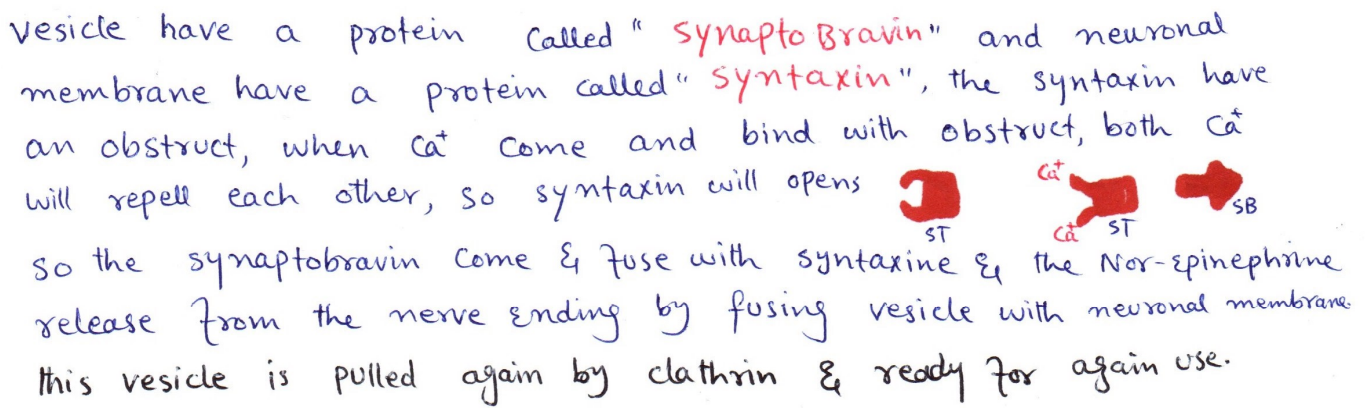 vesicle have a protein called "Synapto Bravin" and neuronal
membrane have a protein called "Syntaxin", the syntaxin have
an obstruct, when Ca⁺ come and bind with obstruct, both Ca⁺
will repell each other, so syntaxin will opens ST Ca⁺ Ca⁺ ST SB
so the synaptobravin come & fuse with syntaxine & the Nor-Epinephrine
release from the nerve Ending by fusing vesicle with neuronal membrane.
this vesicle is pulled again by clathrin & ready for again use.